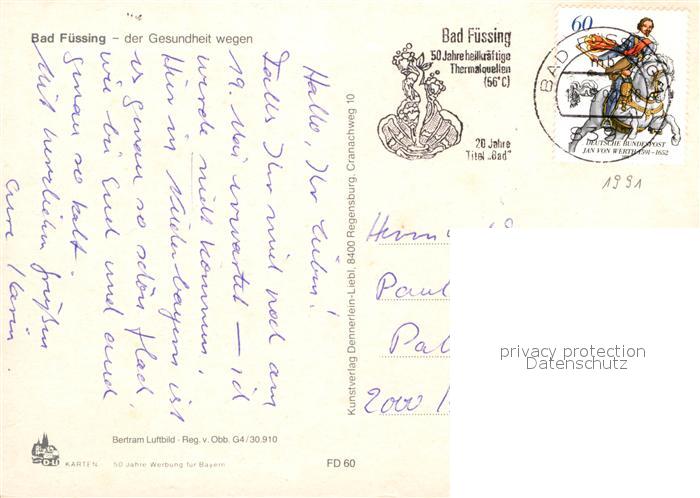 Bad Füssing – der Gesundheit wegen
Hallo, Ihr Lieben!
Falls Ihr mich noch am
19. Mai erwartet – ich
werde nicht kommen.
Hier in Niederbayern ist
es genau so schön flach
wie bei Euch und auch
genau so kalt.
Mit herzlichen Grüßen
Eure Karin
Bertram Luftbild · Reg. v. Obb. G4/30.910
KARTEN 50 Jahre Werbung für Bayern
FD 60
Kunstverlag Dennerlein-Liebl, 8400 Regensburg, Cranachweg 10
Bad Füssing
50 Jahre heilkräftige
Thermalquellen
(56°C)
20 Jahre
Titel „Bad"
60
DEUTSCHE BUNDESPOST
JAN VON WERTH 1591-1652
1991
Herrn
Paul
2000
privacy protection
Datenschutz